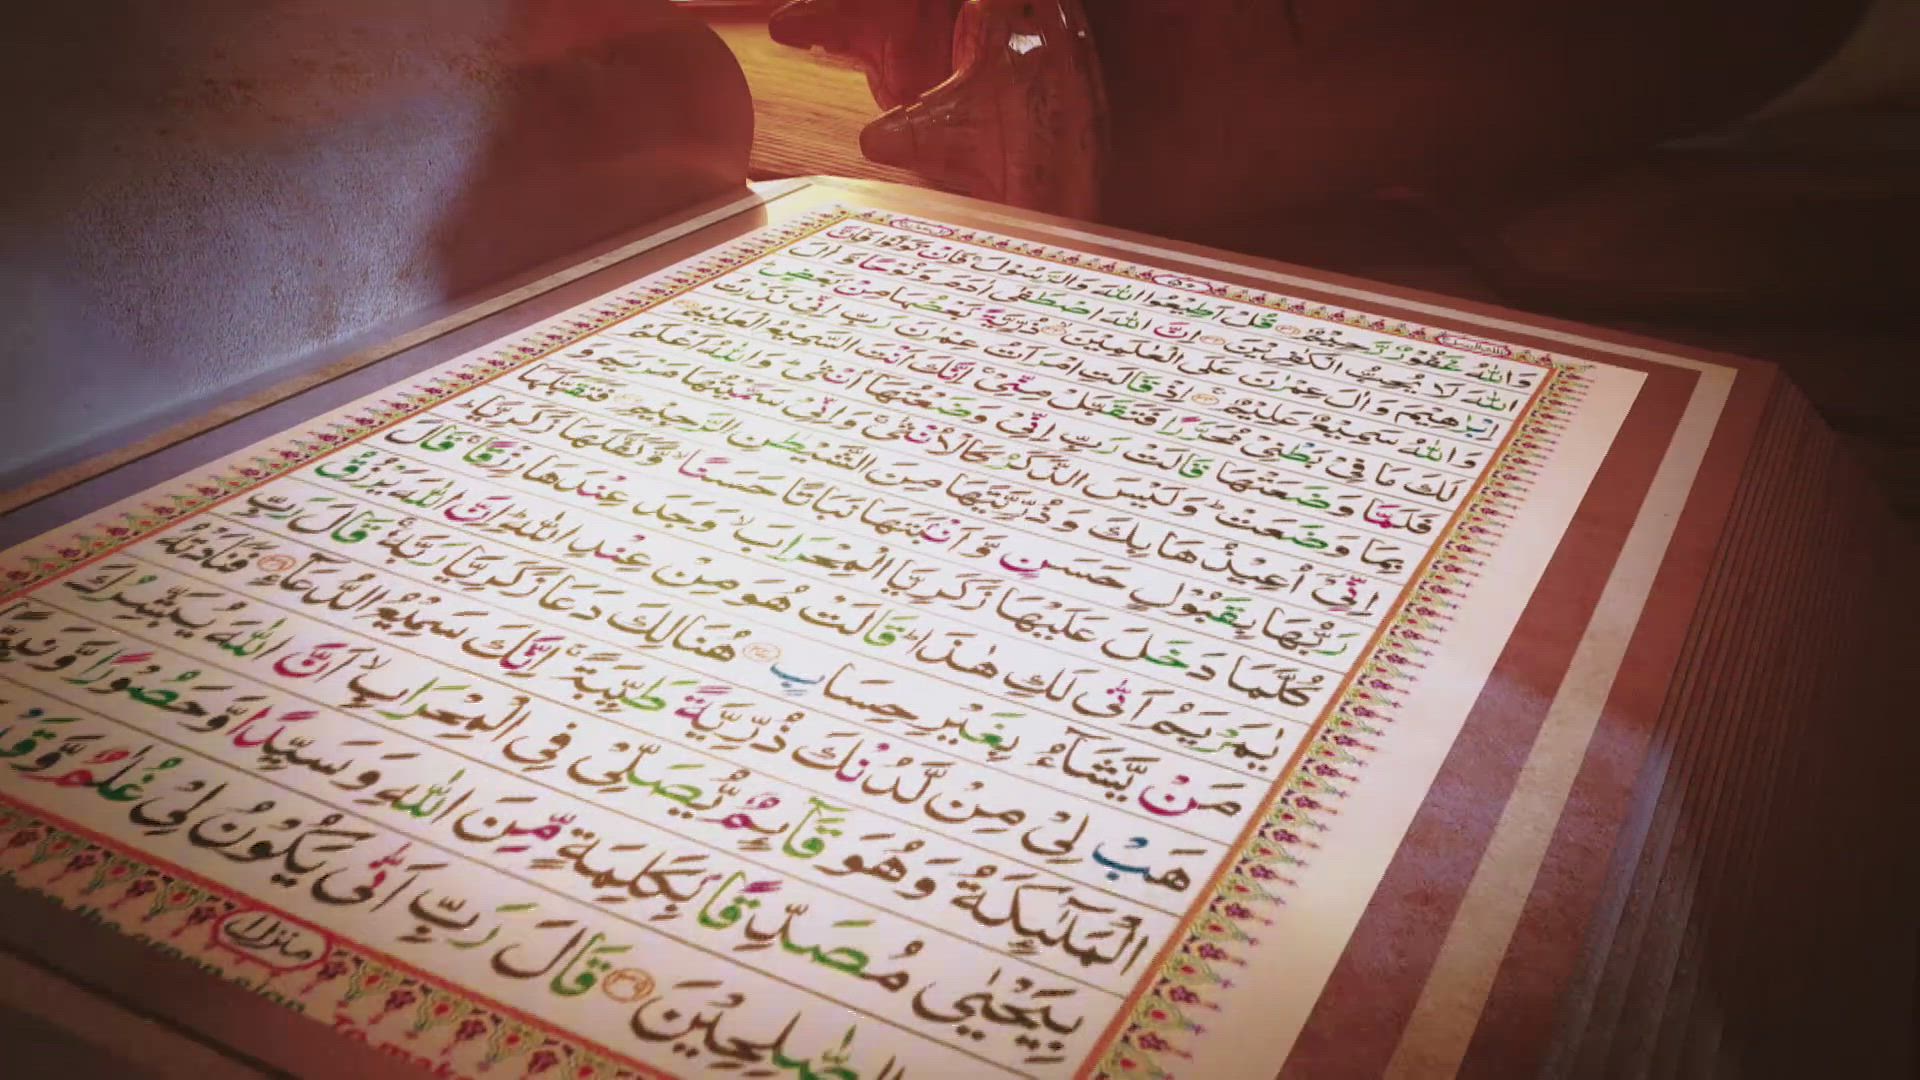 وَاللّٰهُ غَفُوْرٌ رَّحِيْمٌ ﴿۳۱﴾ قُلْ اَطِيْعُوا اللّٰهَ وَالرَّسُوْلَ ۚ فَاِنْ تَوَلَّوْا فَاِنَّ
اللّٰهَ لَا يُحِبُّ الْكٰفِرِيْنَ ﴿۳۲﴾ اِنَّ اللّٰهَ اصْطَفٰٓى اٰدَمَ وَنُوْحًا وَّاٰلَ
اِبْرٰهِيْمَ وَاٰلَ عِمْرٰنَ عَلَى الْعٰلَمِيْنَ ﴿۳۳﴾ ذُرِّيَّةًۢ بَعْضُهَا مِنْۢ بَعْضٍ
وَاللّٰهُ سَمِيْعٌ عَلِيْمٌ ﴿۳۴﴾ اِذْ قَالَتِ امْرَاَتُ عِمْرٰنَ رَبِّ اِنِّيْ نَذَرْتُ
لَكَ مَا فِيْ بَطْنِيْ مُحَرَّرًا فَتَقَبَّلْ مِنِّيْ ۚ اِنَّكَ اَنْتَ السَّمِيْعُ الْعَلِيْمُ ﴿۳۵﴾
فَلَمَّا وَضَعَتْهَا قَالَتْ رَبِّ اِنِّيْ وَضَعْتُهَآ اُنْثٰى ۚ وَاللّٰهُ اَعْلَمُ
بِمَا وَضَعَتْ ۚ وَلَيْسَ الذَّكَرُ كَالْاُنْثٰى ۚ وَاِنِّيْ سَمَّيْتُهَا مَرْيَمَ وَ
اِنِّيْٓ اُعِيْذُهَا بِكَ وَذُرِّيَّتَهَا مِنَ الشَّيْطٰنِ الرَّجِيْمِ ﴿۳۶﴾ فَتَقَبَّلَهَا
رَبُّهَا بِقَبُوْلٍ حَسَنٍ وَّاَنْۢبَتَهَا نَبَاتًا حَسَنًا ۙ وَّكَفَّلَهَا زَكَرِيَّا ۚ
كُلَّمَا دَخَلَ عَلَيْهَا زَكَرِيَّا الْمِحْرَابَ ۙ وَجَدَ عِنْدَهَا رِزْقًا ۚ قَالَ
يٰمَرْيَمُ اَنّٰى لَكِ هٰذَا ۚ قَالَتْ هُوَ مِنْ عِنْدِ اللّٰهِ ۚ اِنَّ اللّٰهَ يَرْزُقُ
مَنْ يَّشَآءُ بِغَيْرِ حِسَابٍ ﴿۳۷﴾ هُنَالِكَ دَعَا زَكَرِيَّا رَبَّهٗ ۚ قَالَ رَبِّ
هَبْ لِيْ مِنْ لَّدُنْكَ ذُرِّيَّةً طَيِّبَةً ۚ اِنَّكَ سَمِيْعُ الدُّعَآءِ ﴿۳۸﴾ فَنَادَتْهُ
الْمَلٰٓئِكَةُ وَهُوَ قَآئِمٌ يُّصَلِّيْ فِي الْمِحْرَابِ ۙ اَنَّ اللّٰهَ يُبَشِّرُكَ
بِيَحْيٰى مُصَدِّقًۢا بِكَلِمَةٍ مِّنَ اللّٰهِ وَسَيِّدًا وَّحَصُوْرًا وَّنَبِيًّا
الصّٰلِحِيْنَ ﴿۳۹﴾ قَالَ رَبِّ اَنّٰى يَكُوْنُ لِيْ غُلٰمٌ وَّقَدْ
منزل ۱
the green sign. To make